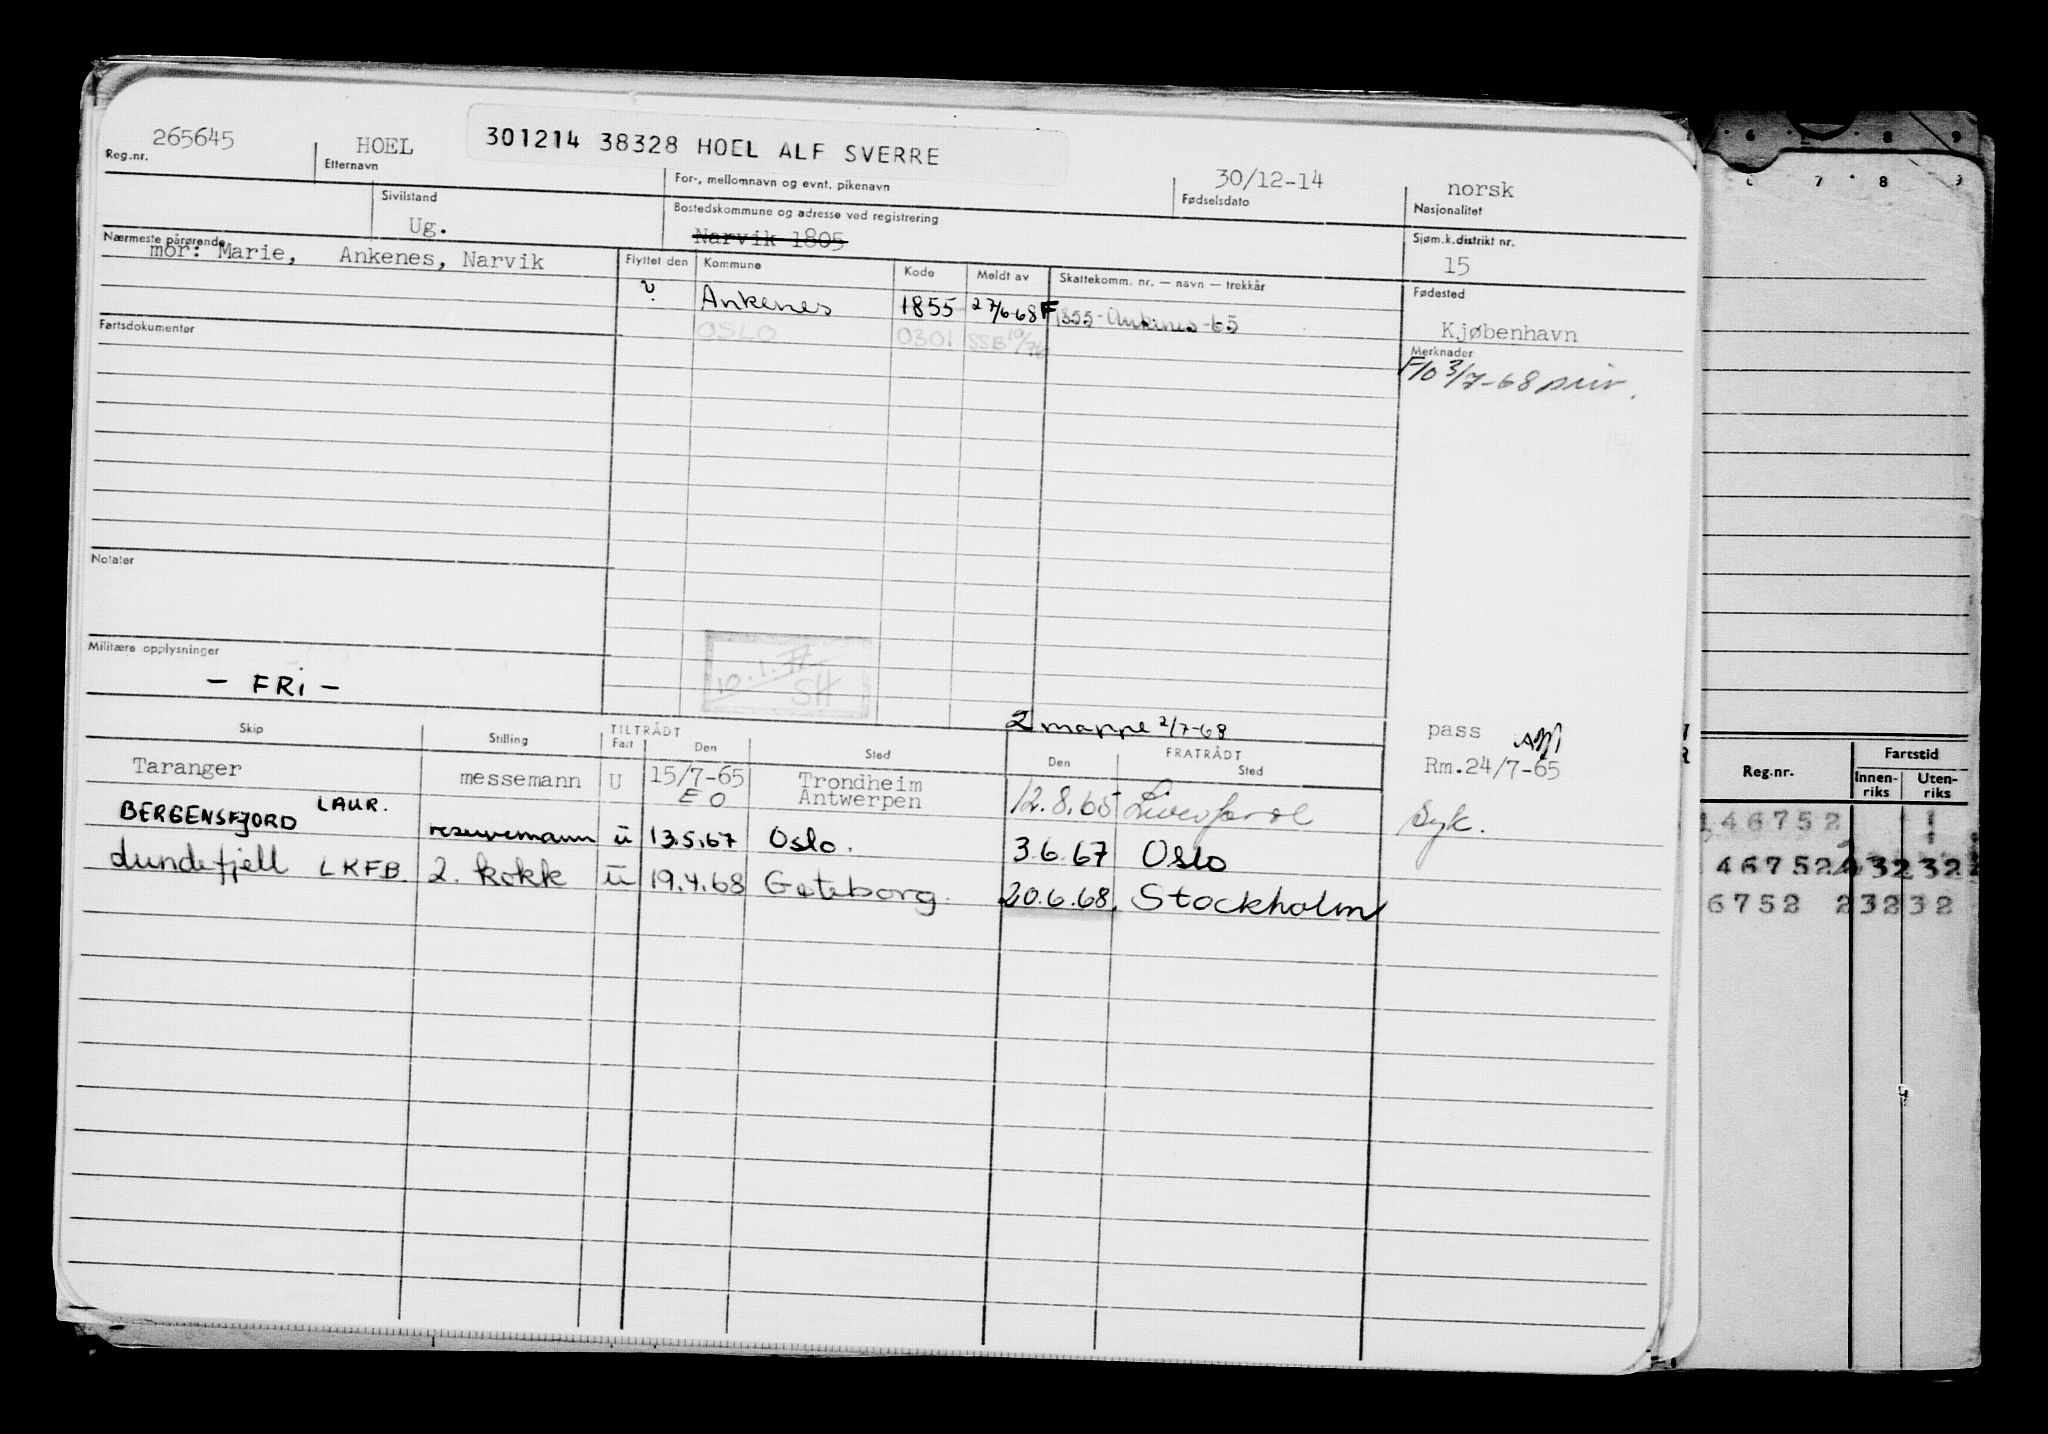 265645 HOEL 301214 38328 HOEL ALF SVERRE 30/12-14 norsk
Reg.nr. Etternavn For-, mellomnavn og evnt. pikenavn Fødselsdato Nasjonalitet
Sivilstand Bostedskommune og adresse ved registrering Sjøm.k.distrikt nr.
Ug. Narvik 1805 15
Nærmeste pårørende
mor: Marie, Ankenes, Narvik
Flyttet den Kommune Kode Meldt av Skattekomm. nr. — navn — trekkår Fødested
Ankenes 1855 27/6-68 F 1855-Ankenes-65 Kjøbenhavn
Fartsdokumenter OSLO 0301 SSB 10/76
Merknader
3/7-68
Notater
Militære opplysninger
— FRi —
10.1.77
SH
2 mappe 2/7-68
Skip Stilling TILTRÅDT FRATRÅDT pass
Fart Den Sted Den Sted
Taranger messemann U 15/7-65 Trondheim Rm.24/7-65
E O Antwerpen 12.8.65 Liverpool Syk.
BERGENSFJORD LAUR. reservemann u 13.5.67 Oslo. 3.6.67 Oslo
Lundefjell LKFB 2. kokk u 19.4.68 Gøteborg. 20.6.68. Stockholm
6 8 9
7 8 9
Reg.nr. Fartstid
Innen-riks Uten-riks
46752
46752 232 32
6752 232 32